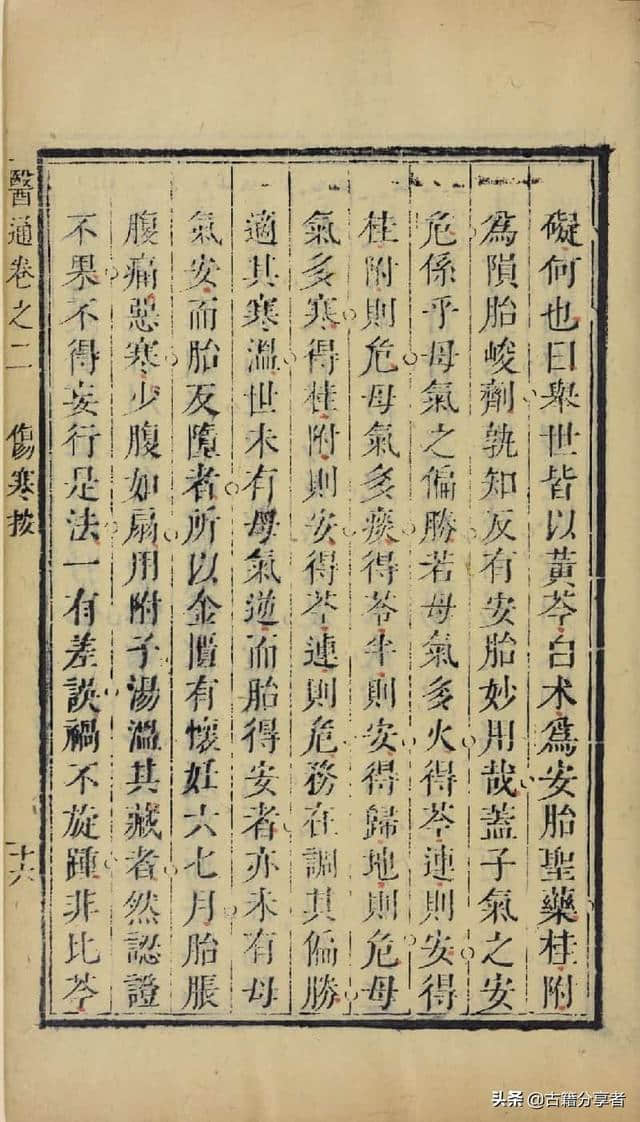 礙何也曰舉世皆以黃芩白术爲安胎聖藥桂附
爲隕胎峻劑孰知反有安胎妙用哉蓋子氣之安
危係乎母氣之偏勝若母氣多火得芩連則安得
桂附則危母氣多痰得苓半則安得歸地則危母
氣多寒得桂附則安得芩連則危務在調其偏勝
適其寒溫世未有母氣逆而胎得安者亦未有母
氣安而胎反墮者所以金匱有懷妊六七月胎脹
腹痛惡寒少腹如扇用附子湯溫其藏者然認證
不果不得妄行是法一有差誤禍不旋踵非比芩
醫通卷之二 傷寒按 十六
头条 @古籍分享者